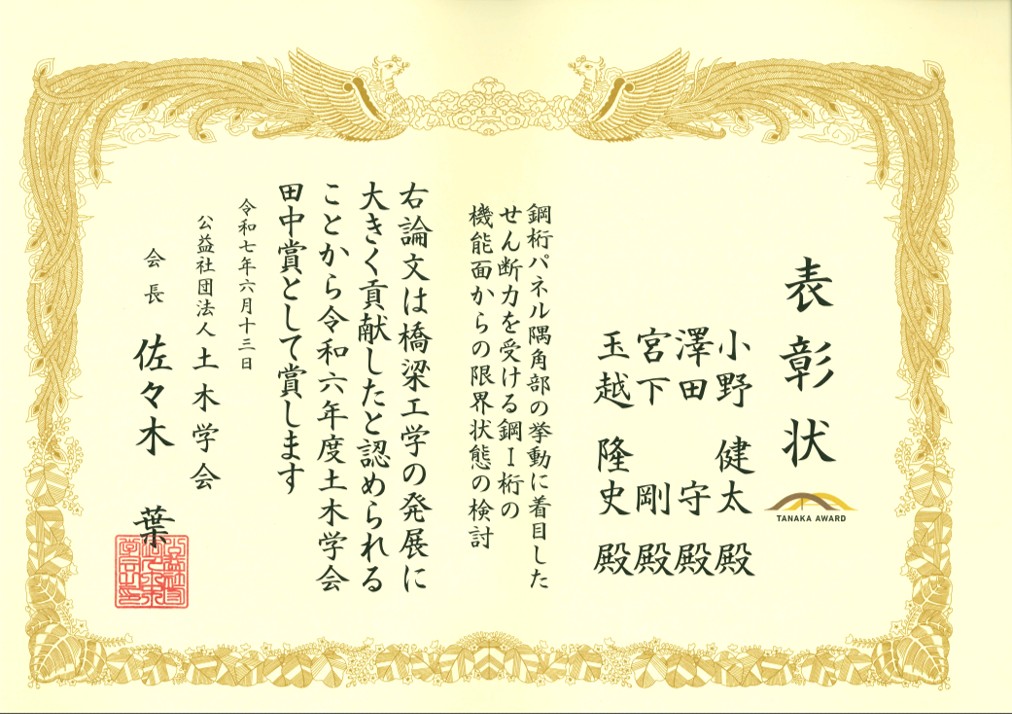 表彰状
TANAKA AWARD
小野 健太 殿
澤田 守 殿
宮下 剛 殿
玉越 隆史 殿
鋼桁パネル隅角部の挙動に着目した
せん断力を受ける鋼I桁の
機能面からの限界状態の検討
右論文は橋梁工学の発展に
大きく貢献したと認められる
ことから令和六年度土木学会
田中賞として賞します
令和七年六月十三日
公益社団法人 土木学会
会長 佐々木 葉